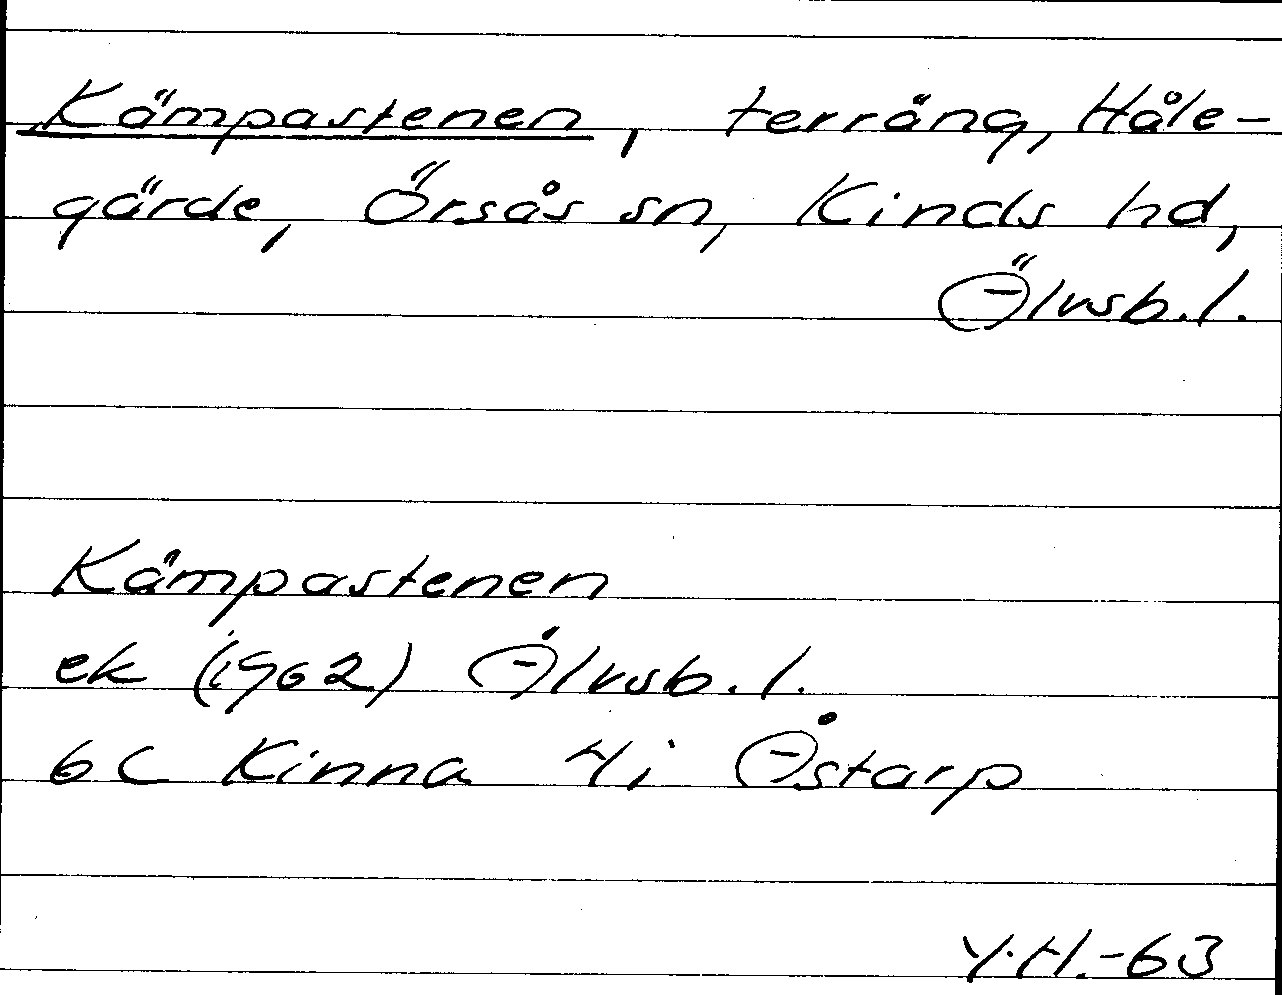 Kämpastenen, terräng, Håle-
gärde, Örsås sn, Kinds hd,
Älvsb. l.
Kämpastenen
ek (1962) Älvsb. l.
6C Kinna 4i Åstarp
Y.H.-63